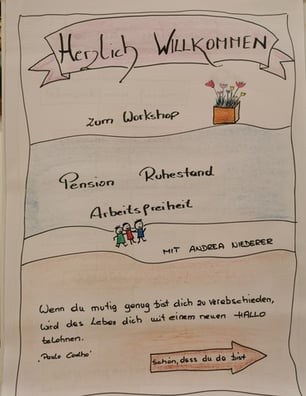 Herzlich WILLKOMMEN
zum Workshop
Pension Ruhestand
Arbeitsfreiheit
MIT ANDREA NIEDERER
Wenn du mutig genug bist dich zu verabschieden,
wird das Leben dich mit einem neuen HALLO
belohnen.
"Paulo Coelho"
Schön, dass du da bist